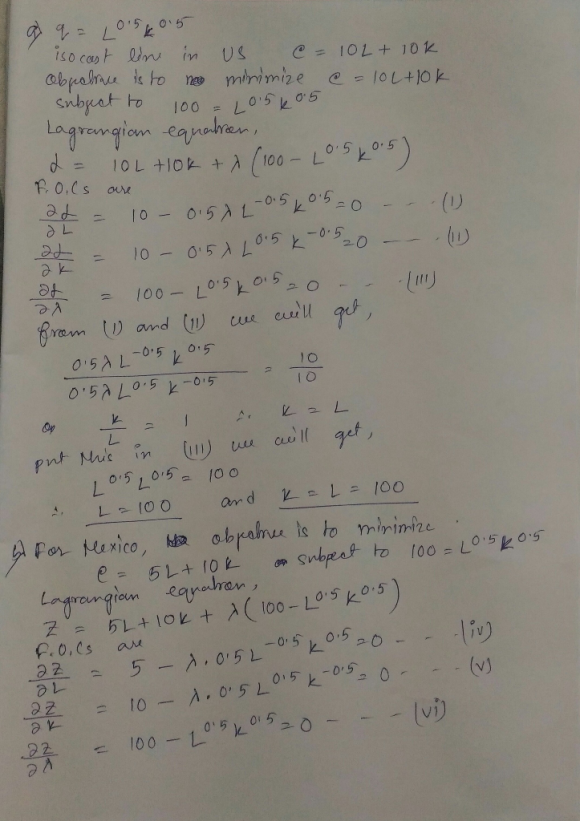 a) q = L^0.5 K^0.5
isocost line in US C = 10L + 10K
objective is to minimize C = 10L + 10K
subject to 100 = L^0.5 K^0.5
Lagrangian equation,
L = 10L + 10K + λ (100 - L^0.5 K^0.5)
F.O.Cs are
∂L/∂L = 10 - 0.5 λ L^-0.5 K^0.5 = 0 - - - (I)
∂L/∂K = 10 - 0.5 λ L^0.5 K^-0.5 = 0 - - - (II)
∂L/∂λ = 100 - L^0.5 K^0.5 = 0 - - - (III)
from (I) and (II) we will get,
0.5 λ L^-0.5 K^0.5 / 0.5 λ L^0.5 K^-0.5 = 10/10
or K/L = 1 ∴ K = L
put this in (III) we will get,
L^0.5 L^0.5 = 100
∴ L = 100 and K = L = 100
b) For Mexico, objective is to minimize
C = 5L + 10K subject to 100 = L^0.5 K^0.5
Lagrangian equation,
Z = 5L + 10K + λ (100 - L^0.5 K^0.5)
F.O.Cs are
∂Z/∂L = 5 - λ . 0.5 L^-0.5 K^0.5 = 0 - - - (iv)
∂Z/∂K = 10 - λ . 0.5 L^0.5 K^-0.5 = 0 - - - (v)
∂Z/∂λ = 100 - L^0.5 K^0.5 = 0 - - - (vi)